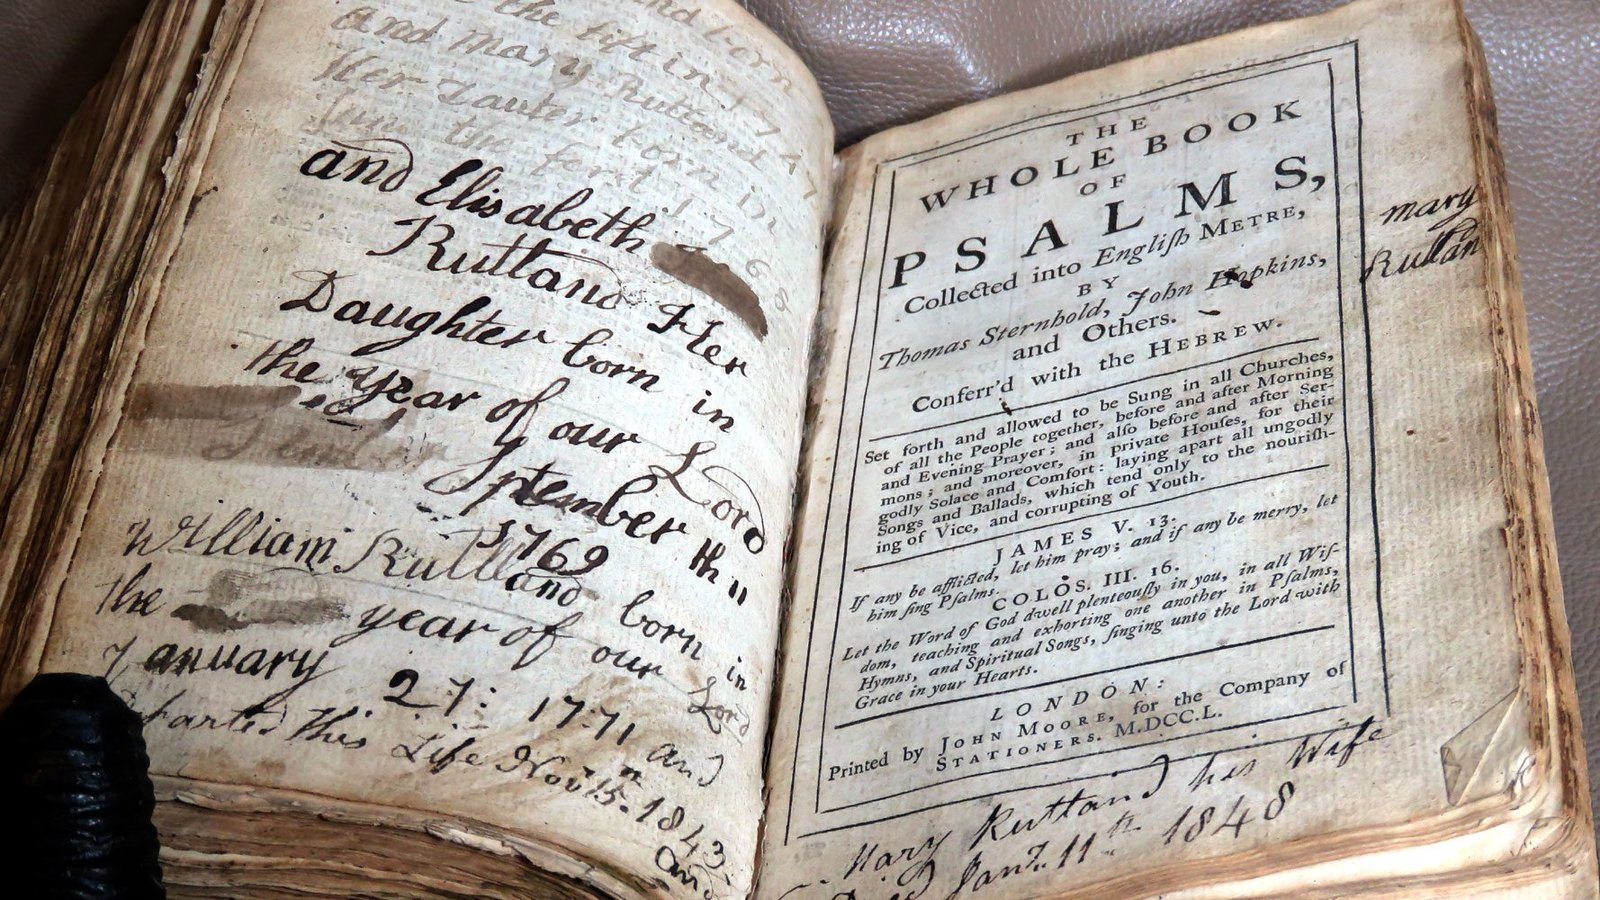 and born
the fift in 17 47
and Mary Rutland
Her Dauter born in
June the ferst 17 68
and Elisabeth
Rutland Her
Daughter born in
the year of our Lord
September th "
1769
William Rutland born in
the year of our Lord
January 27: 1771 and
departed this Life Novr 15th 1843
and
THE
WHOLE BOOK
OF
PSALMS,
Collected into Engliſh METRE,
BY
Thomas Sternhold, John Hopkins,
and Others.
Conferr'd with the HEBREW.
Set forth and allowed to be Sung in all Churches,
of all the People together, before and after Morning
and Evening Prayer; and alſo before and after Ser-
mons; and moreover, in private Houſes, for their
godly Solace and Comfort: laying apart all ungodly
Songs and Ballads, which tend only to the nouriſh-
ing of Vice, and corrupting of Youth.
JAMES V. 13.
If any be afflicted, let him pray; and if any be merry, let
him ſing Pſalms.
COLOS. III. 16.
Let the Word of God dwell plenteouſly in you, in all Wiſ-
dom, teaching and exhorting one another in Pſalms,
Hymns, and Spiritual Songs, ſinging unto the Lord with
Grace in your Hearts.
LONDON:
Printed by JOHN MOORE, for the Company of
STATIONERS. M.DCC.L.
mary
Rutlan
Mary Rutland his Wife
Died Jany. 11th 1848